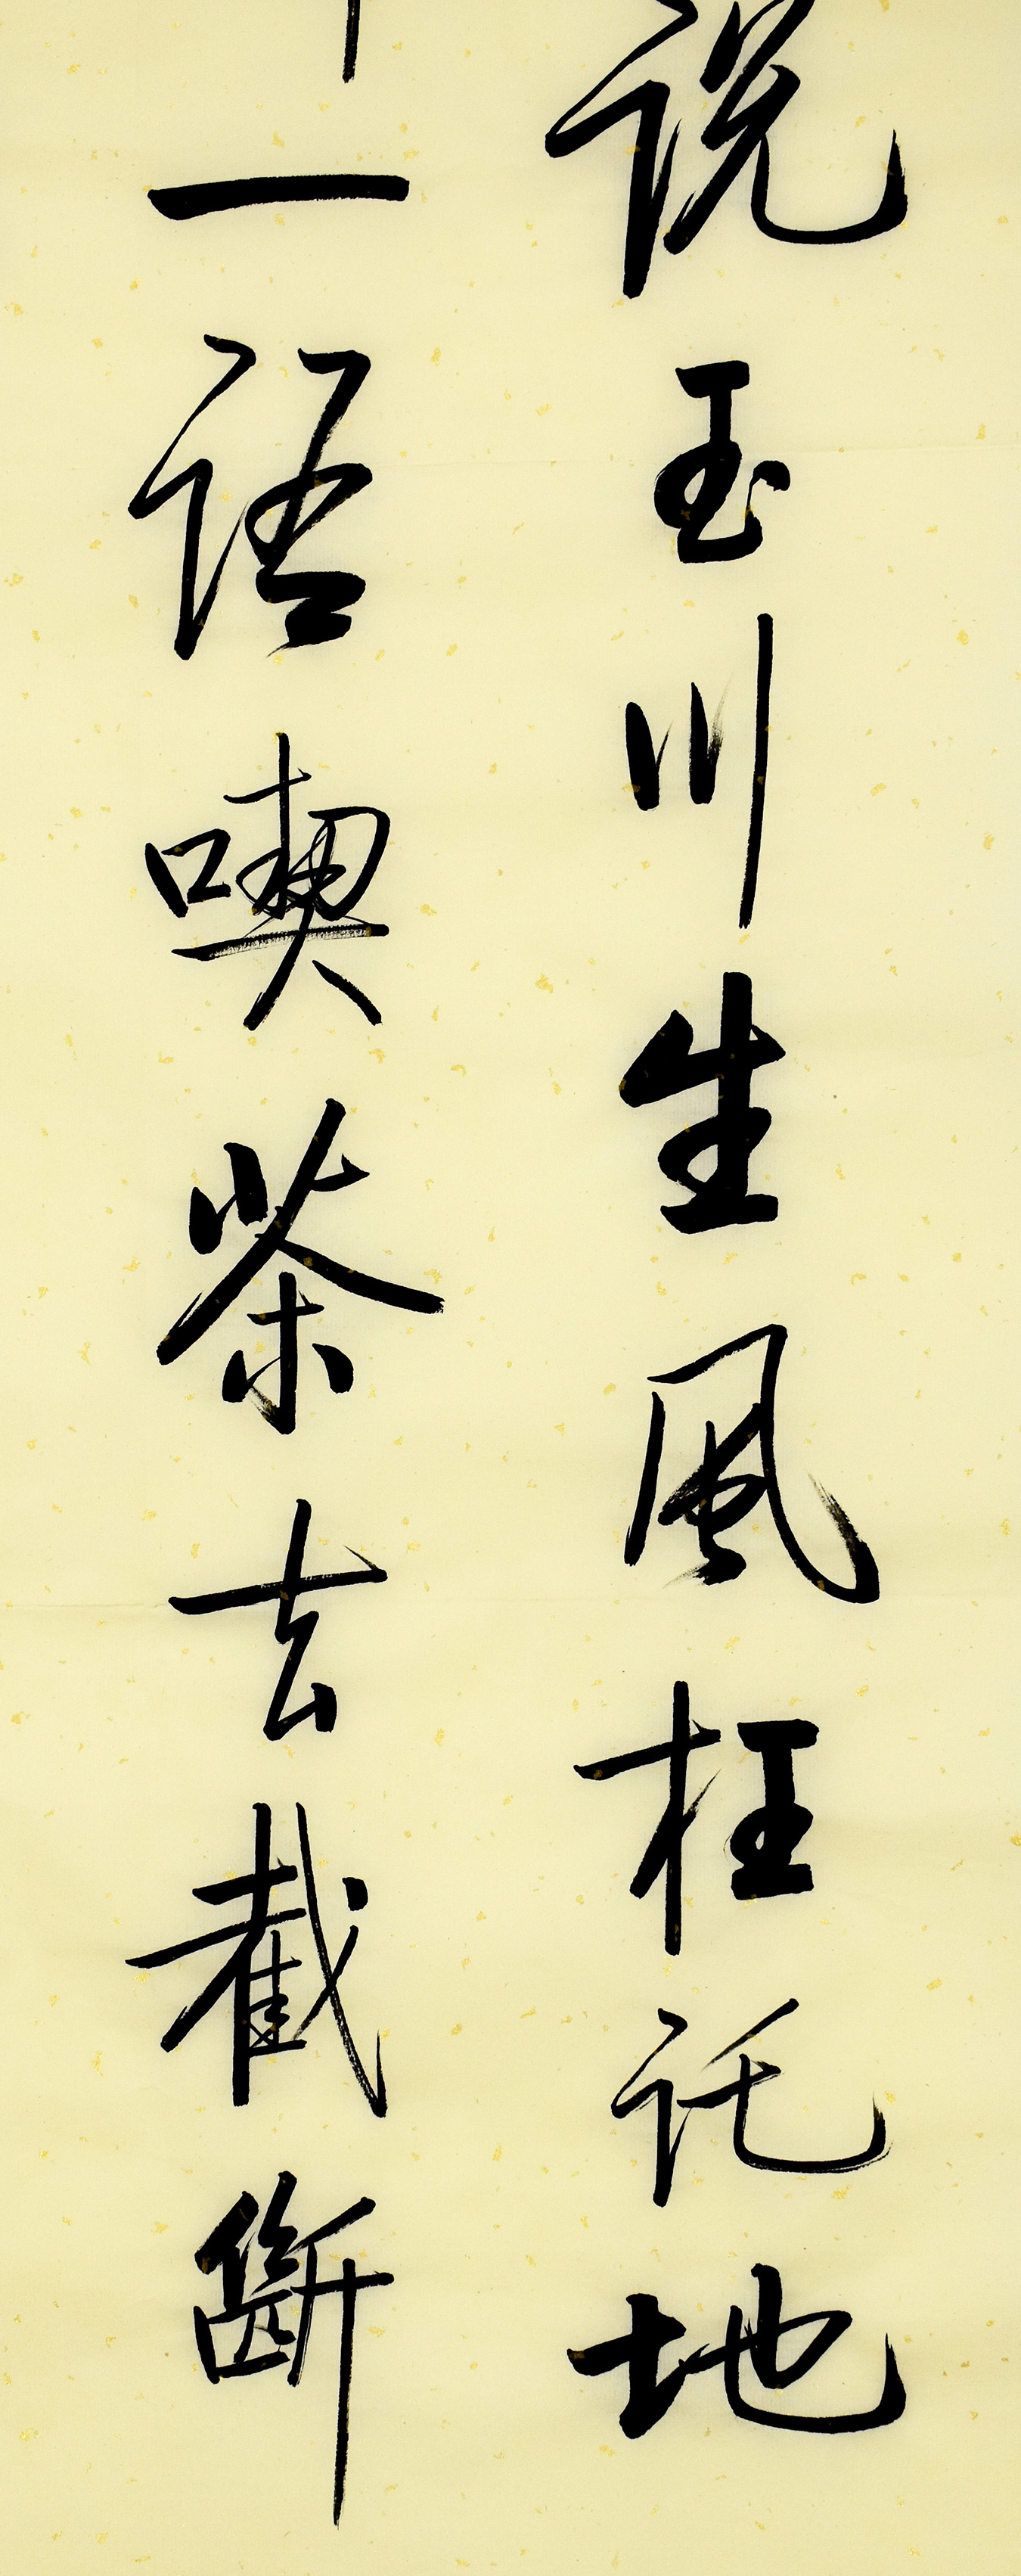 说玉川生風枉託地
一語喫茶去截斷